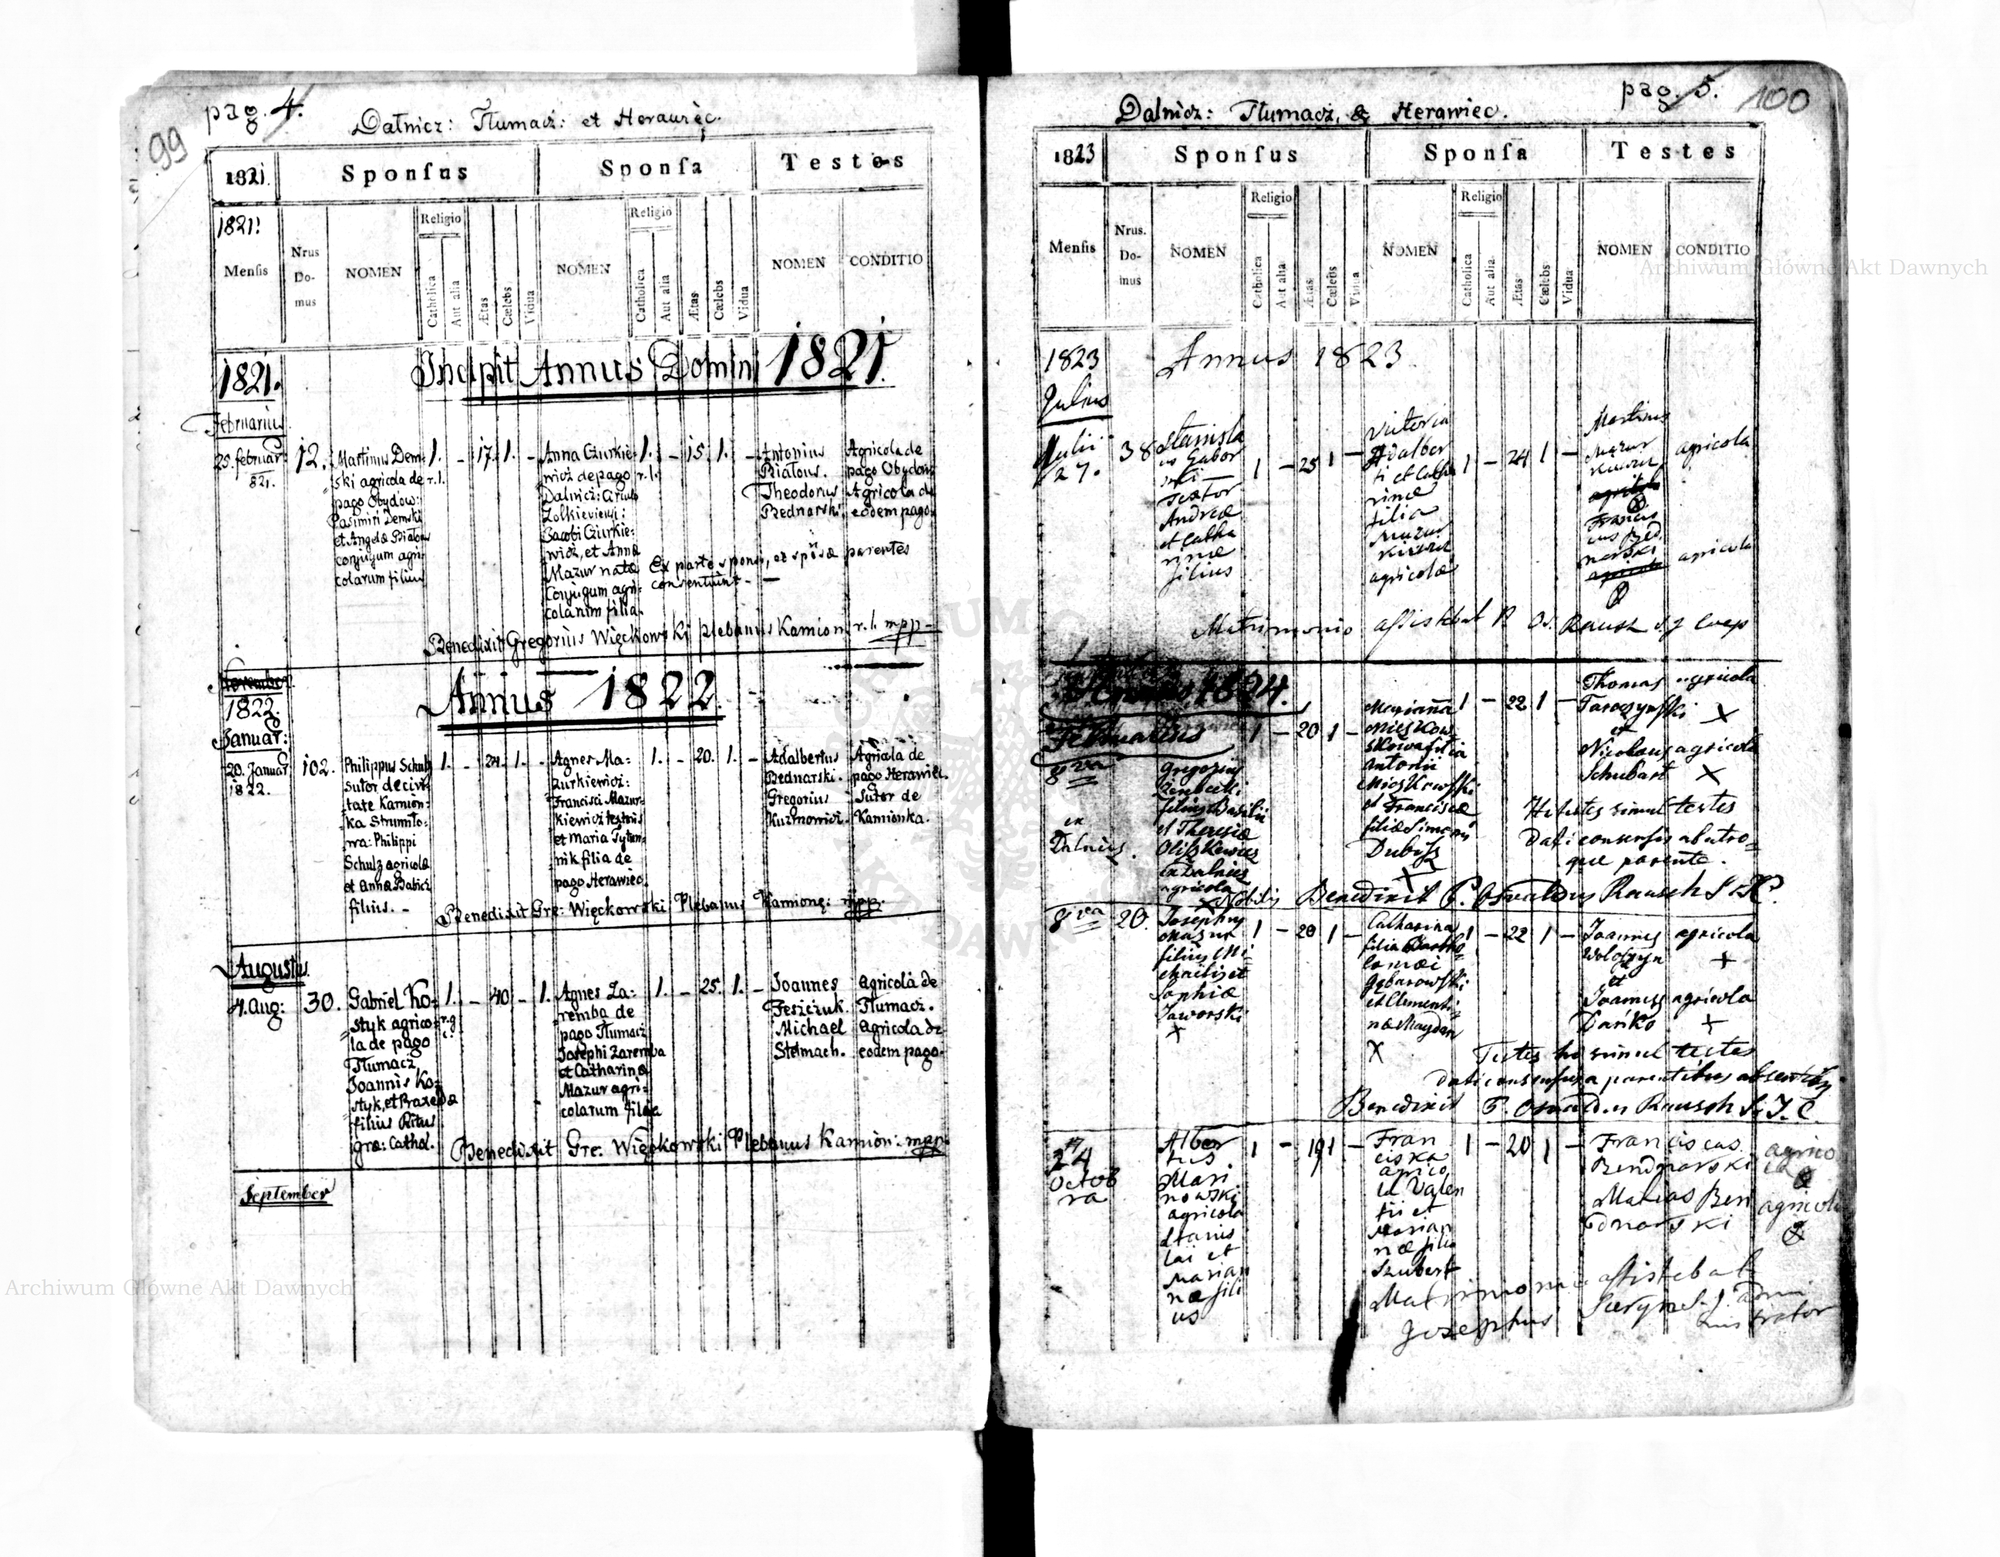 99
pag. 4.
Dalnicz: Tłumacz: et Herawiec.
1821.
Sponſus
Sponſa
Testes
1821!
Menſis
Nrus Do-mus
NOMEN
Religio
Catholica
Aut alia
Ætas
Cœlebs
Vidua
NOMEN
Religio
Catholica
Aut alia
Ætas
Cœlebs
Vidua
NOMEN
CONDITIO
1821.
Incipit Annus Domini 1821.
Februarius
25. februar:
821.
12.
Martinus Dem-
ski agricola de
pago Obydow:
Casimiri Demski
et Angela Białous
conjugum agri-
colarum filius
1.
r.l.
-
17.
1.
-
Anna Ciurkie-
wicz de pago
Dalnicz: Circuli
Zołkieviensi:
Jacobi Ciurkie-
wicz, et Anna
Mazur nata
Conjugum agri-
colarum filia.
1.
r.l.
-
15.
1.
-
Antonius
Białous.
Theodorus
Bednarski.
Agricola de
pago Obydow
Agricola de
eodem pago.
Ex parte sponsi, et spõsæ parentes
consentiunt. -
Benedixit Gregorius Więckowski Plebanus Kamion. r. l. mpp-
November
1822.
Annus 1822.
Januar:
20. Januar
1822.
102.
Philippus Schulz
Sutor de civi-
tate Kamion-
ka Strumiło-
wa: Philippi
Schulz agricolæ
et Annæ Babicz
filius. -
1.
-
24.
1.
-
Agnes Ma-
zurkiewicz:
Francisci Mazur-
kiewicz textoris
et Maria Tytum-
nik filia de
pago Herawiec.
1.
-
20.
1.
-
Adalbertus
Bednarski.
Gregorius
Kuzmowicz.
Agricola de
pago Herawiec.
Sutor de
Kamionka.
Benedixit Gre: Więckowski Plebanus Kamionę: mpp.
Augustus.
4. Aug:
30.
Gabriel Ko-
styk agrico-
la de pago
Tłumacz,
Joannis Ko-
styk, et Praxeda
filius Ritus
græ: Cathol.
1.
r.g.
c.
-
40
-
1.
Agnes Za-
remba de
pago Tłumacz
Josephi Zaremba
et Catharina
Mazur agri-
colarum filia
1.
-
25.
1.
-
Joannes
Feszczuk.
Michael
Stelmach.
agricola de
Tłumacz.
agricola de
eodem pago.
Benedixit Gre: Więckowski Plebanus Kamion: mpp.
September
100
pag. 5.
Dalnicz: Tłumacz, & Herawiec.
1823
Sponſus
Sponſa
Testes
Menſis
Nrus. Do-mus
NOMEN
Religio
Catholica
Aut alia
Ætas
Cœlebs
Vidua
NOMEN
Religio
Catholica
Aut alia
Ætas
Cœlebs
Vidua
NOMEN
CONDITIO
1823
Annus 1823
Julius
Julii
27.
38
Stanisla
us Gabor
ski
Textor
Andreæ
et Catha
rinæ
filius
1
-
25
1
-
Victoria
Adalber
ti et Catha
rinæ
filia
Mazur
agricolæ
1
-
24
1
-
Martinus
Mazur
agricola
Francis
cus Bed
narski
agricola
agricola
agricola
Matrimonio assistebat P. Os. Rausch S.J. Coop
Annus 1824.
Februarius
8va
ex
Dalnicz.
Gregorius
filius Basilii
et Theresiæ
ex Dalnicz
agricola
1
-
20
1
-
Marianna
Mieszkow
skowa filia
Antonii
Mioszkowski
et Franciscæ
filiæ Simonis
1
-
22
1
-
Thomas
Taraszynski
et
Nicolaus
Schubart
agricola
X
agricola
X
Hi testes simul testes
dati consensus ab utro-
que parente.
Benedixit P. Osvaldus Rausch S.J.
8va
20.
Josephus
Mazur
filius Mi-
chailis et
Sophiæ
Jaworski
+
1
-
20
1
-
Catharina
filia Bartho-
lomæi
Gębarowski
et Clementi-
næ Maydan
X
1
-
22
1
-
Joannes
Woloszyn
et
Joannes
Dańko
agricola
+
agricola
+
Testes hi simul testes
dati consensus a parentibus absentibus
Benedixit P. Osvaldus Rausch S.J.C.
24
Octob
ra
Alber
tus
Mari
nowski
agricola
Stanis
lai et
Marian
næ fili
us
1
-
19
1
-
Fran
ciska
agrico
la Valen
tii et
Marian
næ filia
Szubert
1
-
20
1
-
Franciscus
Bendnarski
Matias Ben
dnarski
agrico
la
agricola
Matrimonio assistebat
Jozephus
Admi
nistrator
Archiwum Główne Akt Dawnych
Archiwum Główne Akt Dawnych